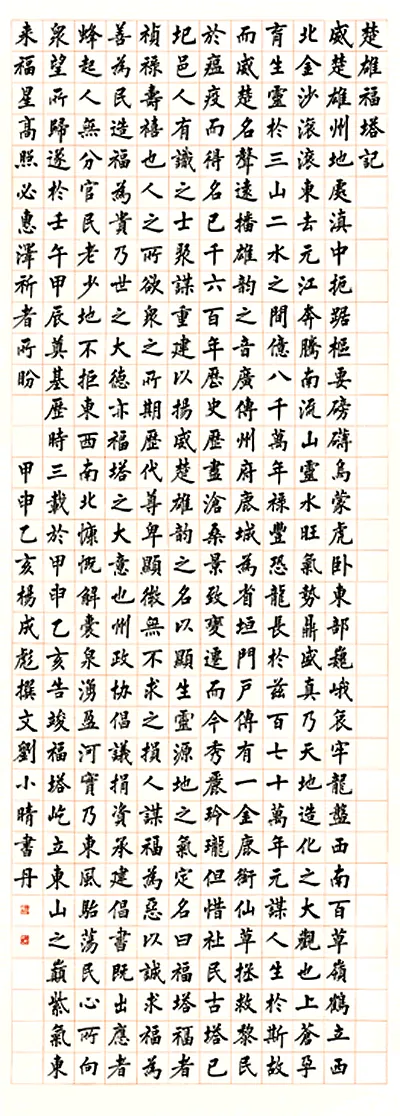 楚雄福塔記
威楚雄州地處滇中扼踞樞要磅礴烏蒙虎卧東部巍峨哀牢龍盤西南百草嶺鶴立西
北金沙滾滾東去元江奔騰南流山靈水旺氣勢鼎盛真乃天地造化之大觀也上蒼孕
育生靈於三山二水之間億八千萬年祿豐恐龍長於茲百七十萬年元謀人生於斯故
而威楚名聲遠播雄韵之音廣傳州府鹿城為省垣門戶傳有一金鹿銜仙草拯救黎民
於瘟疫而得名已千六百年歷史歷盡滄桑景致變遷而今秀麗玲瓏但惜社民古塔已
圮邑人有識之士聚謀重建以揚威楚雄韵之名以顯生靈源地之氣定名曰福塔福者
禎祿壽禧也人之所欲衆之所期歷代尊卑顯微無不求之損人謀福為惡以誠求福為
善為民造福為貴乃世之大德亦福塔之大意也州政协倡議捐資承建倡書既出應者
蜂起人無分官民老少地不拒東西南北慷慨解囊泉湧盈河實乃東風駘蕩民心所向
衆望所歸遂於壬午甲辰奠基歷時三載於甲申乙亥告竣福塔屹立東山之巔紫氣東
来福星高照必惠澤祈者所盼 甲申乙亥楊成彪撰文劉小晴書丹